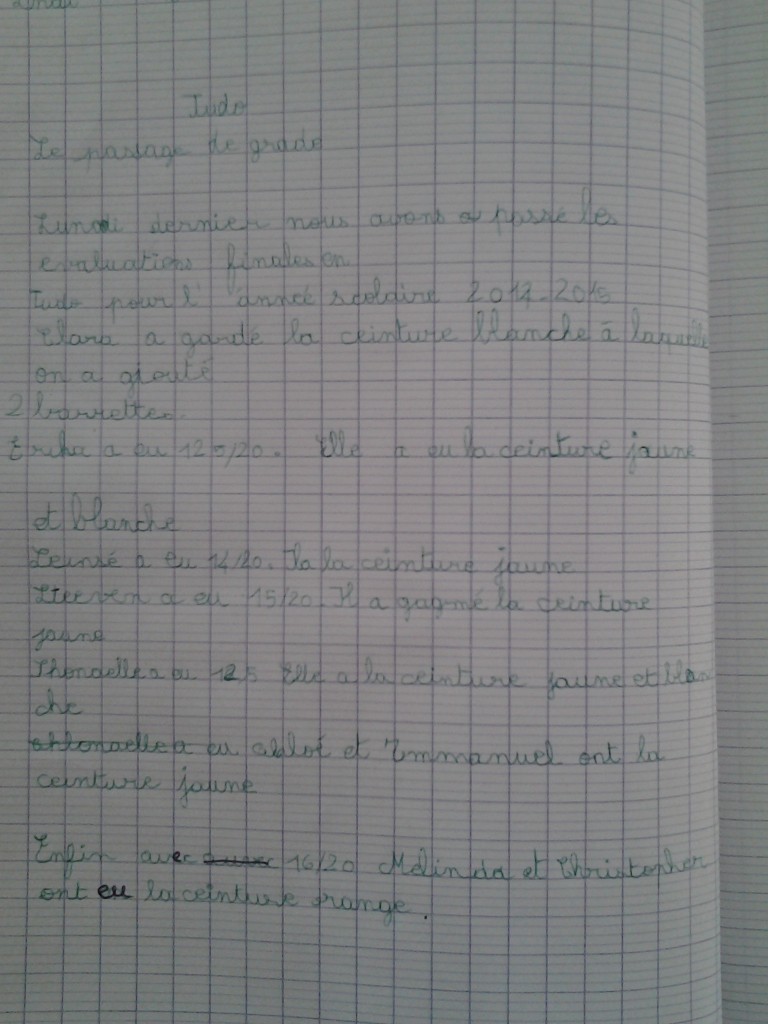 Judo
Le passage de grade
Lundi dernier nous avons passé les
evaluations finales en
Judo pour l'année scolaire 2017-2018
Clara a gardé la ceinture blanche à laquelle
on a ajouté
2 barrettes.
a eu 12,5/20. Elle a eu la ceinture jaune
et blanche
a eu 14/20. Il a la ceinture jaune
Steeven a eu 15/20. Il a gagné la ceinture
jaune
a eu 12,5 Elle a la ceinture jaune et blan
che
a eu et Emmanuel ont la
ceinture jaune
Enfin avec 16/20 Mélinda et Christopher
ont eu la ceinture orange.